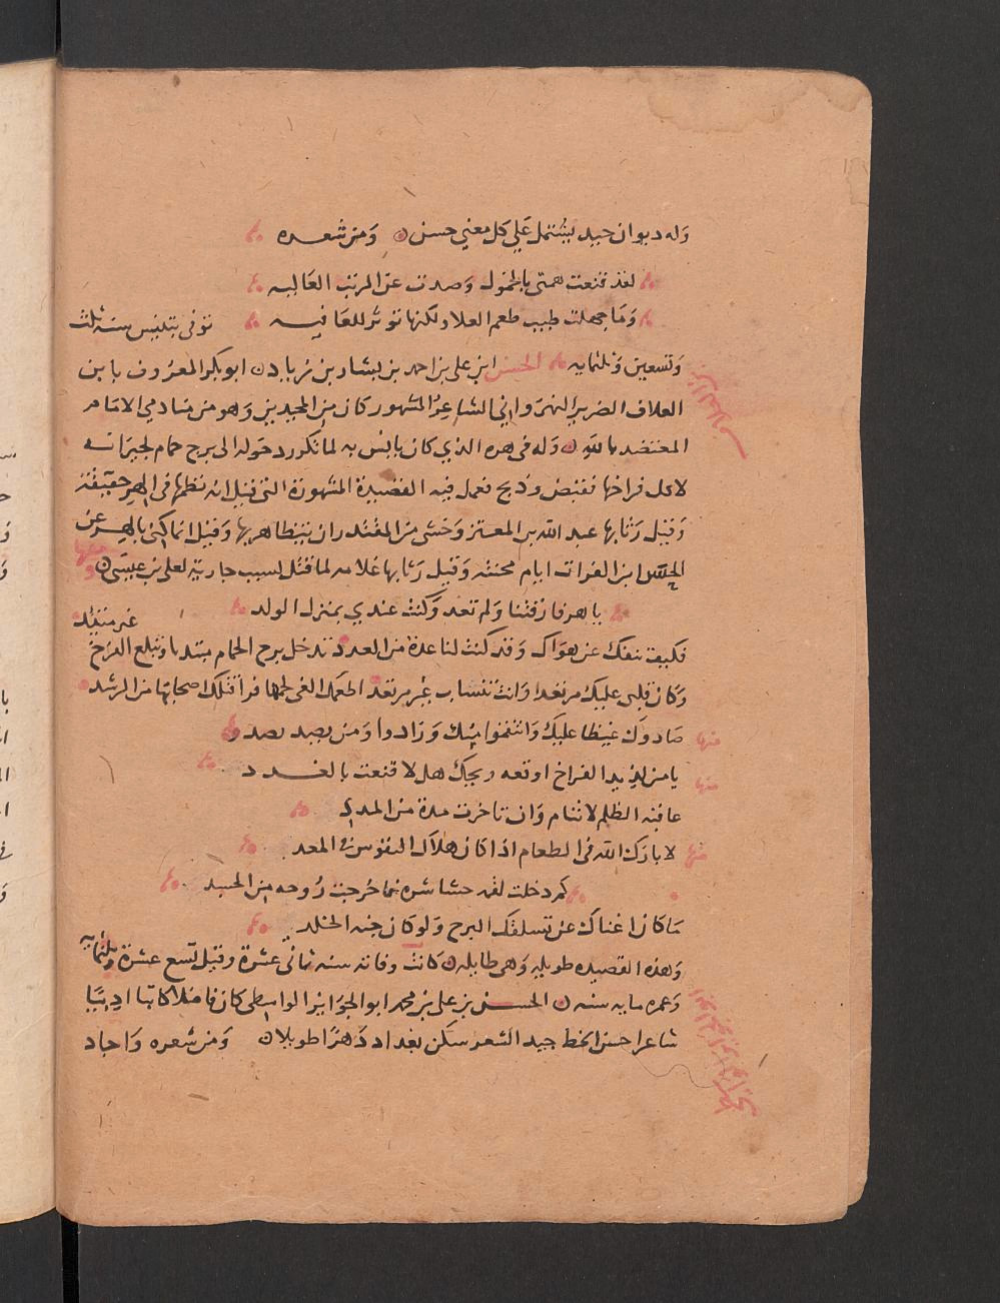 وله ديوان جيد يشتمل علي كل معني حسن ومن شعره
لقد قنعت همتي بالخمول وصدت عن الرتب العاليه
وما جهلت طيب طعم العلا ولكنها توثر للعافيه توفى بتنيس سنه ثلث
وتسعين وثلثمايه الحسن ابن علي بن احمد بن بشار بن زياد ابو بكر المعروف بابن
العلاف الضرير النهرواني الشاعر المشهور كان من المجيدين وهو من منادمي الامام
المعتضد بالله وله في هره الذي كان يانس به لما تكرر دخوله الى برج حمام لجيرانه
لاكل فراخها فقبض وذبح فعمل فيه القصيدة المشهورة التي قيل انه نظمها في الهر حقيقة
وقيل رثا بها عبد الله بن المعتز وخشى من المقتدر ان يتظاهر بها وقيل انما كنى بالهر عن
المحسن ابن الفرات ايام محنته وقيل رثا بها غلامه لما قتل لسبب جارية لعلي بن عيسى
يا هر فارقتنا ولم تعد وكنت عندي بمنزل الولد
فكيف ننفك عن هواك وقد كنت لنا عدة من العدد تدخل برج الحمام متيدا وتبلع الفرخ غير متيد
وكان قلبي عليك مرتعدا وانت تنساب غير مرتعد اطعمك الغي لحمها فرا قتلك اصحابها من الرشد
صادوك غيظا عليك وانتقموا منك وزادوا ومن يصيد يصد
يا من لذيد الفراخ اوقعه ويحك هلا قنعت بالغدد
عاقبه الظلم لا تنام وان تاخرت مدة من المدد
لا بارك الله في الطعام اذا كان هلاك النفوس في المعد
كم دخلت لقمه حشا شره فما خرجت روحه من الجسد
ما كان اغناك عن تسلقك البرج ولو كان جنه الخلد
وهذه القصيده طويله وهي طايله كانت وفاته سنه ثماني عشرة وقيل تسع عشرة وثلثمايه
وعمره مايه سنه الحسن بن علي بن محمد ابو الجوايز الواسطي كان فاضلا كاتبا اديبا
شاعرا حسن الخط جيد الشعر سكن بغداد دهرا طويلا ومن شعره واجاد
منها
منها
منها